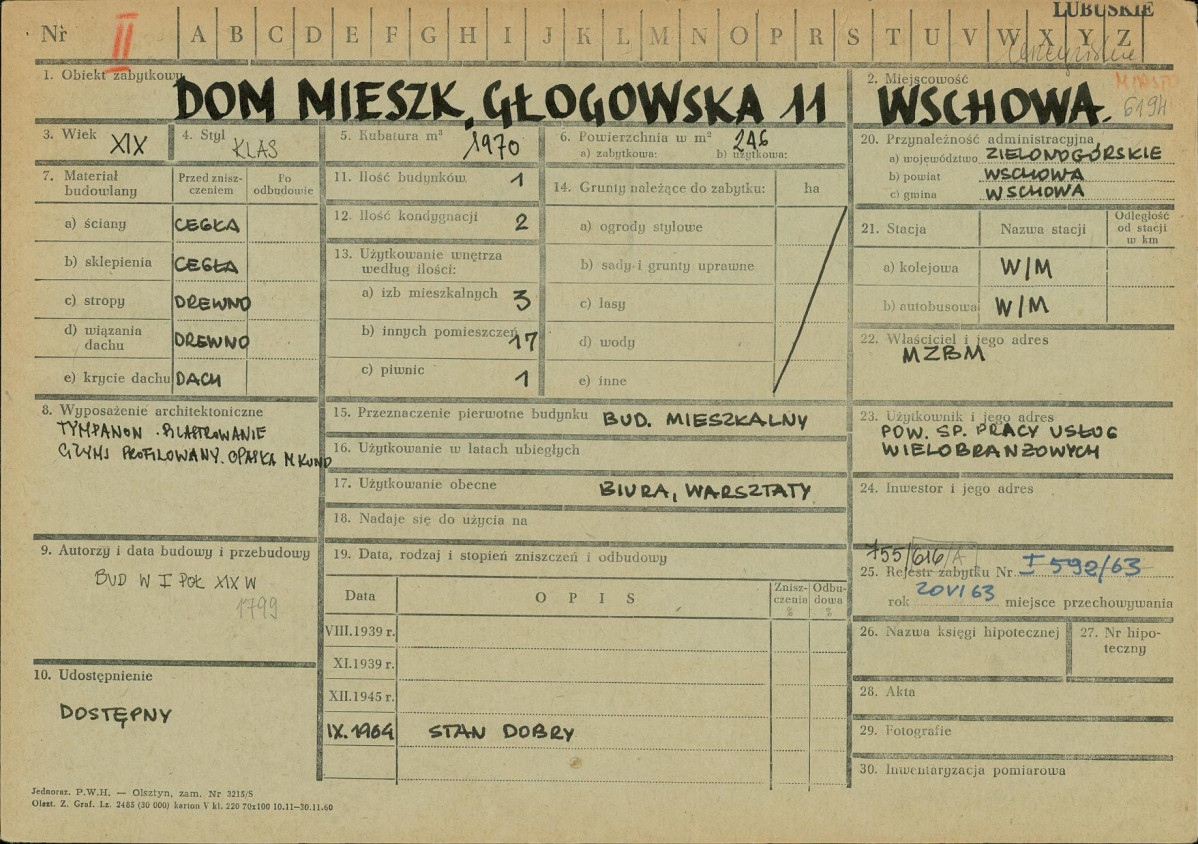 LUBUSKIE
Nr II A B C D E F G H I J K L M N O P R S T U V W X Y Z
1. Obiekt zabytkowy
DOM MIESZK, GŁOGOWSKA 11
2. Miejscowość
MIASTO
WSCHOWA. 6194
3. Wiek XIX
4. Styl KLAS
5. Kubatura m³ 1970
6. Powierzchnia w m² 246
a) zabytkowa: b) użytkowa:
7. Materiał budowlany
Przed znisz-
czeniem
Po
odbudowie
a) ściany CEGŁA
b) sklepienia CEGŁA
c) stropy DREWNO
d) wiązania
dachu DREWNO
e) krycie dachu DACH
8. Wyposażenie architektoniczne
TYMPANON
GZYMS PROFILOWANY. OPASKA
9. Autorzy i data budowy i przebudowy
BUD W I POŁ XIX W
1799
10. Udostępnienie
DOSTĘPNY
11. Ilość budynków 1
12. Ilość kondygnacji 2
13. Użytkowanie wnętrza
według ilości:
a) izb mieszkalnych 3
b) innych pomieszczeń 17
c) piwnic 1
14. Grunty należące do zabytku: ha
a) ogrody stylowe
b) sady i grunty uprawne
c) lasy
d) wody
e) inne
15. Przeznaczenie pierwotne budynku BUD. MIESZKALNY
16. Użytkowanie w latach ubiegłych
17. Użytkowanie obecne BIURA, WARSZTATY
18. Nadaje się do użycia na
19. Data, rodzaj i stopień zniszczeń i odbudowy
Data OPIS
Znisz-
czenia
%
Odbu-
dowa
%
VIII.1939 r.
XI.1939 r.
XII.1945 r.
IX.1964 STAN DOBRY
20. Przynależność administracyjna
a) województwo ZIELONOGÓRSKIE
b) powiat WSCHOWA
c) gmina WSCHOWA
21. Stacja Nazwa stacji
Odległość
od stacji
w km
a) kolejowa W/M
b) autobusowa W/M
22. Właściciel i jego adres
MZBM
23. Użytkownik i jego adres
POW. SP. PRACY USŁUG
WIELOBRANŻOWYCH
24. Inwestor i jego adres
755/616/A
25. Rejestr zabytku Nr I 592/63
rok 20 VI 63 miejsce przechowywania
26. Nazwa księgi hipotecznej
27. Nr hipo-
teczny
28. Akta
29. Fotografie
30. Inwentaryzacja pomiarowa
Jednoraz. P.W.H. — Olsztyn, zam. Nr 3215/S
Olszt. Z. Graf. Lz. 2485 (30 000) karton V kl. 220 70x100 10.11—30.11.60